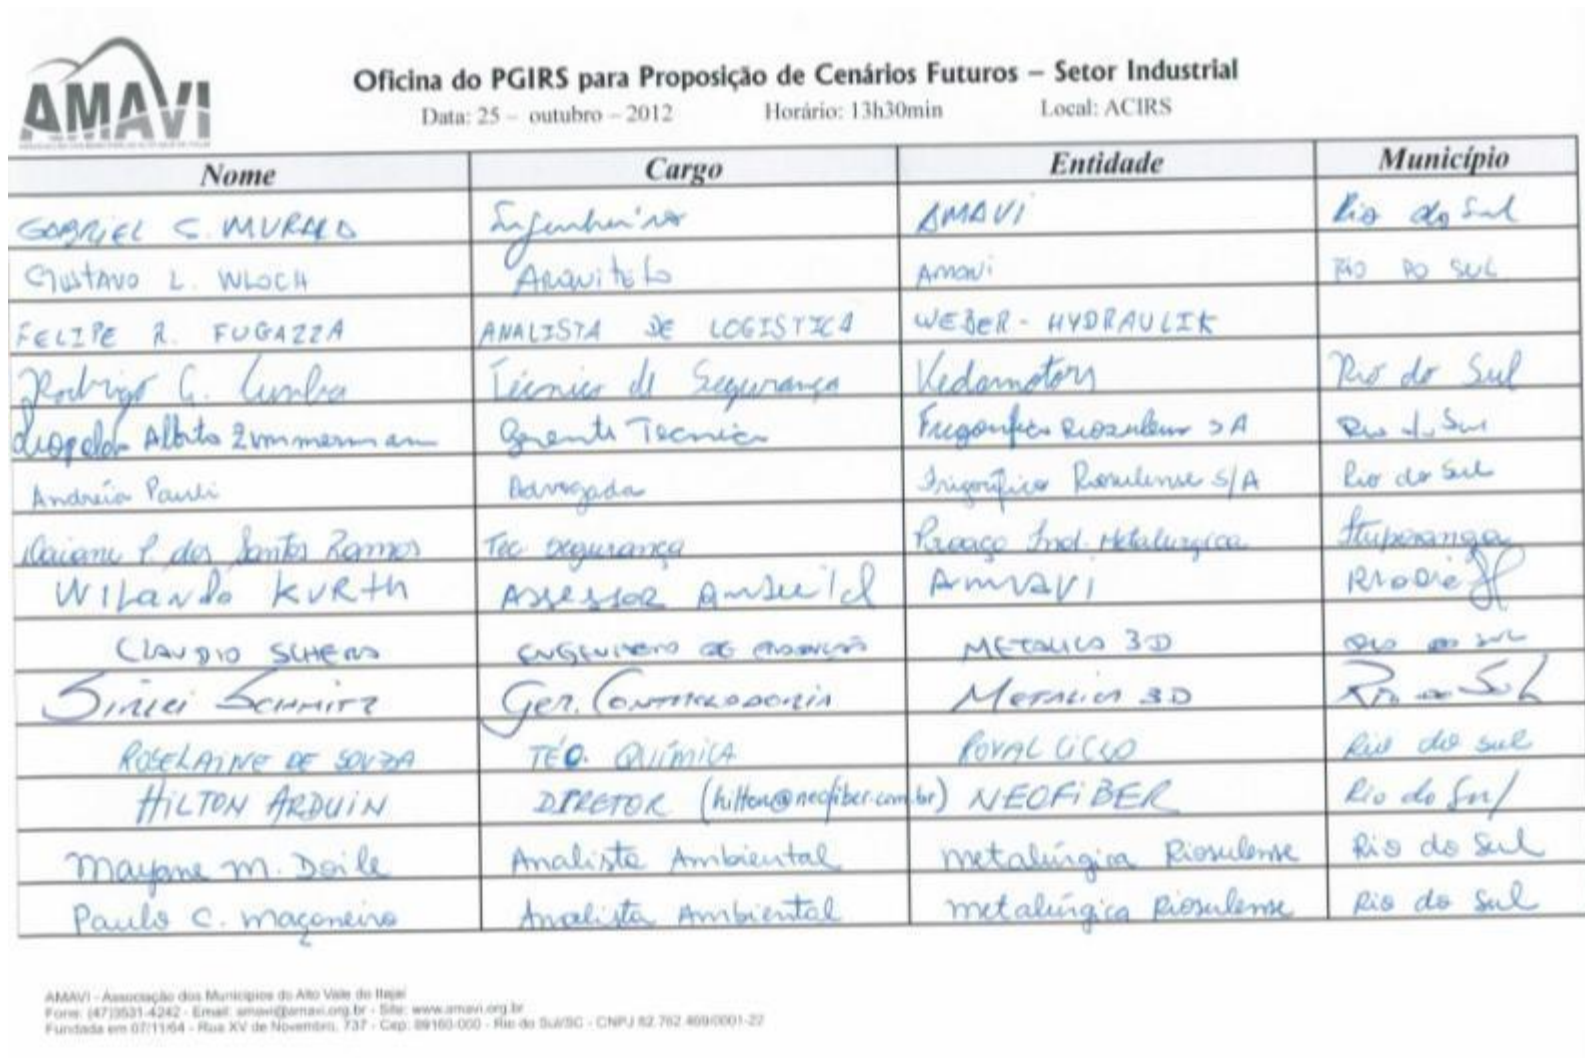 AMAVI
Oficina do PGIRS para Proposição de Cenários Futuros – Setor Industrial
Data: 25 – outubro – 2012 Horário: 13h30min Local: ACIRS
Nome Cargo Entidade Município
GABRIEL S. Engenheiro AMAVI Rio do Sul
GUSTAVO L. WLOCH ARQUITETO Amavi RIO DO SUL
FELIPE R. FUGAZZA ANALISTA DE LOGISTICA WEBER - HYDRAULIK
Rodrigo G. Cunha Técnico de Segurança Vedamotors Rio do Sul
Leopoldo Alberto Zimmermann Gerente Tecnico Frigorifico Riosulense SA Rio do Sul
Andréia Pauli Advogada Frigorífico Riosulense S/A Rio do Sul
P. dos Santos Ramos Tec segurança Proaço Ind. Metalurgica Ituporanga
WILANDO KURTH ASSESSOR AMAVI
CLAUDIO ENGENHEIRO DE METALICA 3D RIO DO SUL
SCHMITZ Ger. CONTROLADORIA METALICA 3D Rio do Sul
ROSELAINE DE SOUZA TÉC. QUÍMICA ROYAL CICLO Rio do sul
HILTON ARDUIN DIRETOR (hilton@neofiber.com.br) NEOFIBER Rio do Sul
Mayane M. Doile Analista Ambiental metalúrgica Riosulense Rio do Sul
Paulo C. maçaneiro Analista Ambiental metalúrgica Riosulense Rio do Sul
AMAVI - Associação dos Municípios do Alto Vale do Itajaí
Fone: (47)3531-4242 - Email: amavi@amavi.org.br - Site: www.amavi.org.br
Fundada em 07/11/64 - Rua XV de Novembro, 737 - Cep: 89160-000 - Rio do Sul/SC - CNPJ 82.762.469/0001-22